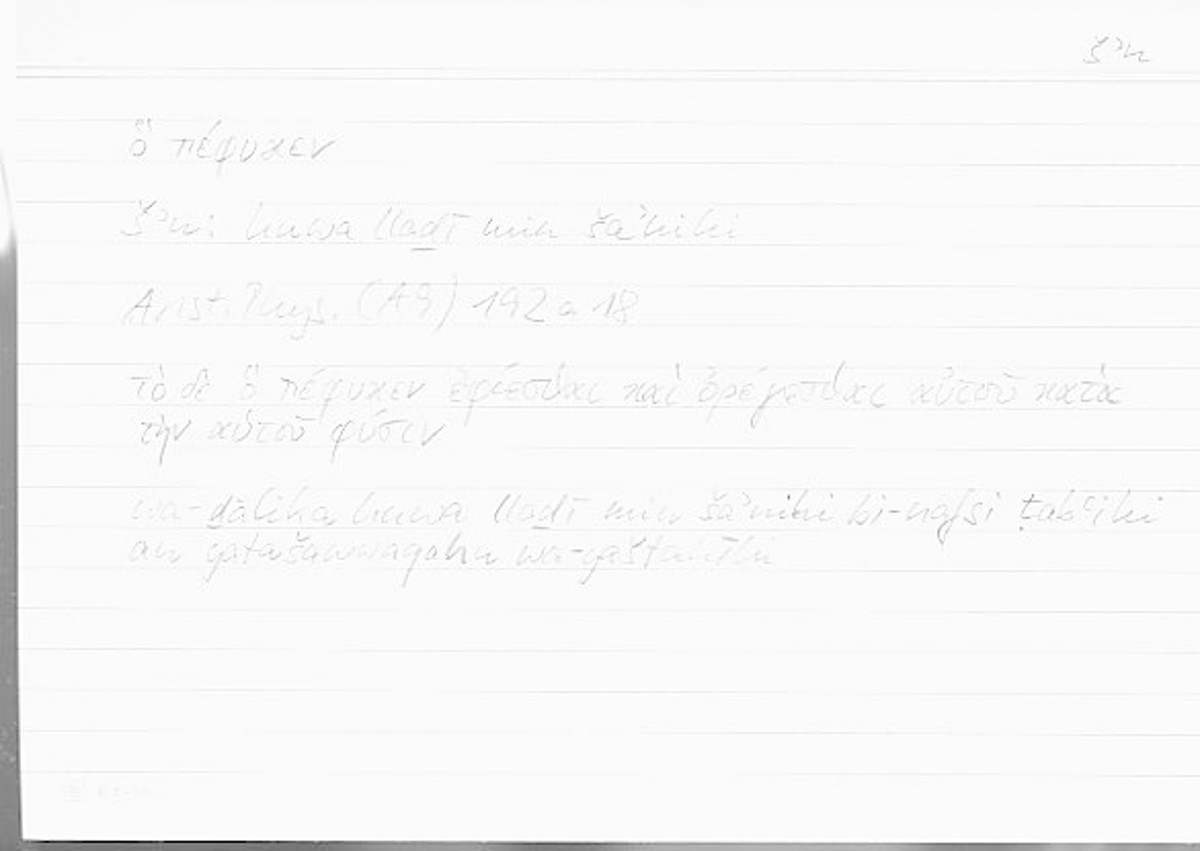 šʾn
ὃ πέφυκεν
šʾn: huwa lladī min šaʾnihi
Arist. Phys. (A9) 192 a 18
τὸ δὲ ὃ πέφυκεν ἐφίεσθαι καὶ ὀρέγεσθαι αὐτοῦ κατὰ
τὴν αὑτοῦ φύσιν
wa-ḏālika huwa llaḏī min šaʾnihi bi-nafsi ṭabʿihi
an yatašawwaqahu wa-yaštahīhi